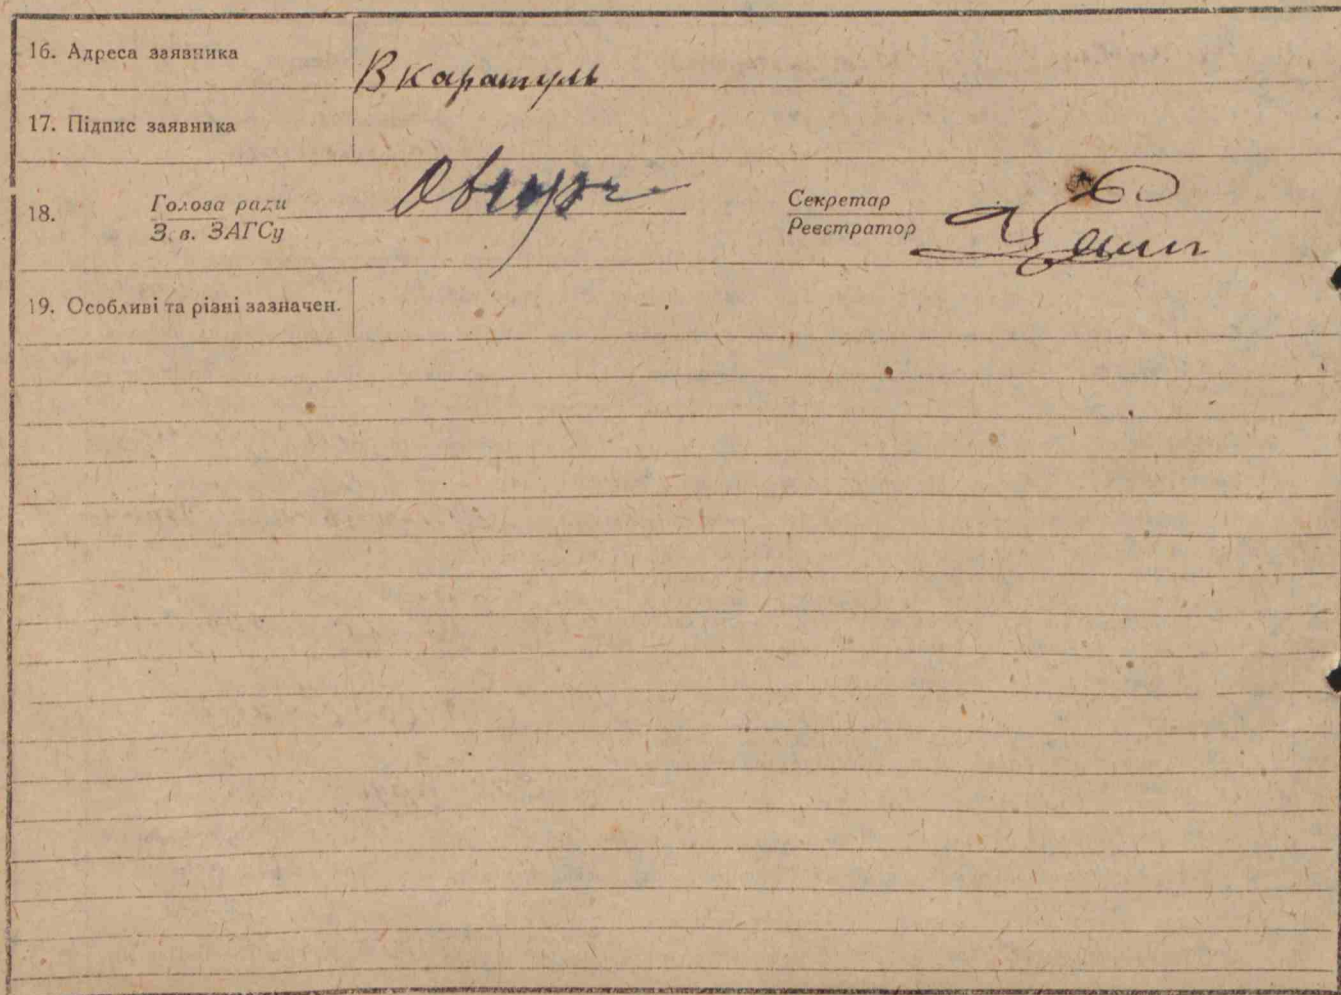 16. Адреса заявника
В Каратуль
17. Підпис заявника
18. Голова ради
З. в. ЗАГСу
Секретар
Реєстратор
19. Особливі та різні зазначен.